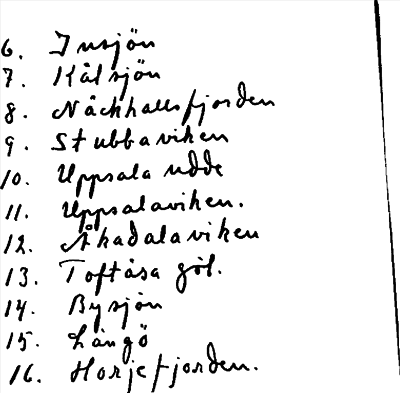 6. Insjön
7. Kålsjön
8. Näckhallsfjorden
9. Stubbaviken
10. Uppsala udde
11. Uppsalaviken.
12. Åkadalaviken
13. Toftåsa göl.
14. Bysjön
15. Långö
16. Horjefjorden.